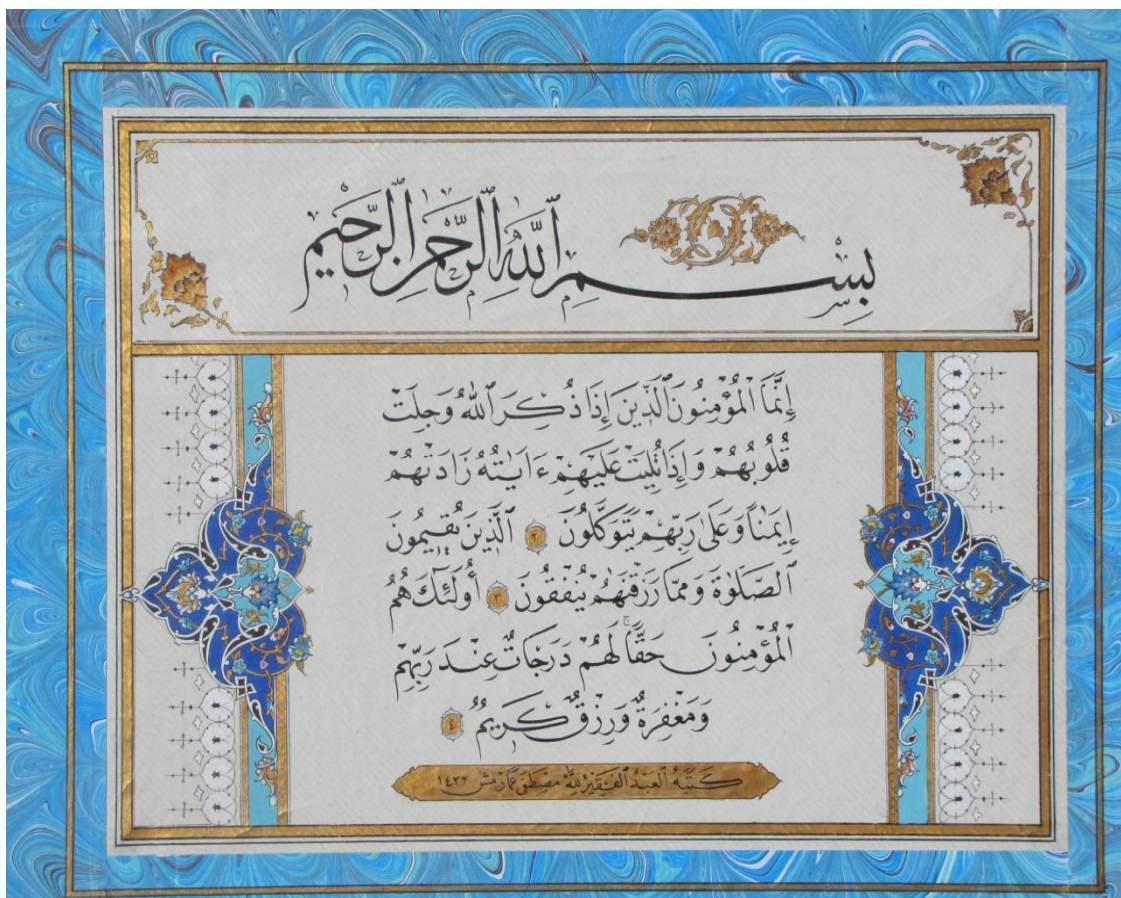 بِسْمِ ٱللَّهِ ٱلرَّحْمَٰنِ ٱلرَّحِيمِ
إِنَّمَا ٱلْمُؤْمِنُونَ ٱلَّذِينَ إِذَا ذُكِرَ ٱللَّهُ وَجِلَتْ
قُلُوبُهُمْ وَإِذَا تُلِيَتْ عَلَيْهِمْ ءَايَٰتُهُۥ زَادَتْهُمْ
إِيمَٰنًا وَعَلَىٰ رَبِّهِمْ يَتَوَكَّلُونَ ٢ ٱلَّذِينَ يُقِيمُونَ
ٱلصَّلَوٰةَ وَمِمَّا رَزَقْنَٰهُمْ يُنفِقُونَ ٣ أُو۟لَٰٓئِكَ هُمُ
ٱلْمُؤْمِنُونَ حَقًّا ۚ لَهُمْ دَرَجَاتٌ عِندَ رَبِّهِمْ
وَمَغْفِرَةٌ وَرِزْقٌ كَرِيمٌ ٤
كَتَبَهُ ٱلعَبْدُ ٱلفَقِيرُ لِلَّهِ مصطفى ١٤٣٢